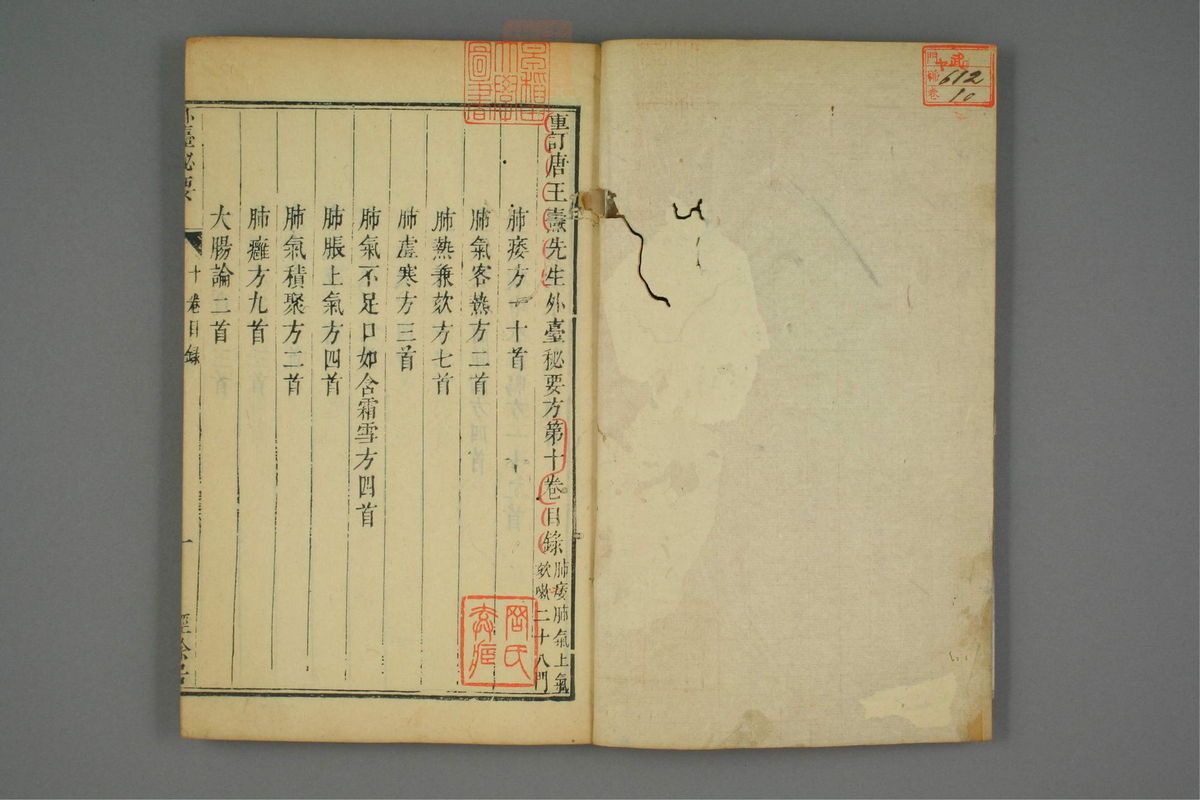 門 武
中
號 612
卷 10
早稲田
大學
圖書
重訂唐王燾先生外臺秘要方第十卷目錄 肺痿肺氣上氣
欬嗽二十八門
肺痿方一十首
肺氣客熱方二首
肺熱兼欬方七首
肺虛寒方三首
肺氣不足口如含霜雪方四首
肺脹上氣方四首
肺氣積聚方二首
肺癰方九首
大腸論二首
外臺秘要
十卷目錄
一
經餘居